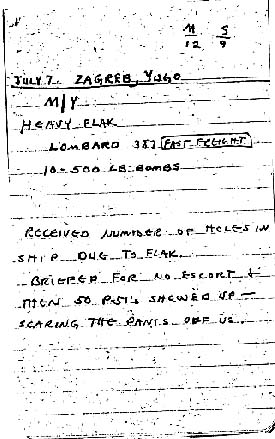 M S
12 9
JULY 7. ZAGREB, YUGO
M/Y
HEAVY FLAK
LOMBARD 383 FAST FREIGHT
10-500 LB. BOMBS
RECEIVED NUMBER OF HOLES IN
SHIP DUE TO FLAK.
BRIEFED FOR NO ESCORT &
THEN 50 P-51's SHOWED UP —
SCARING THE PANTS OFF US.